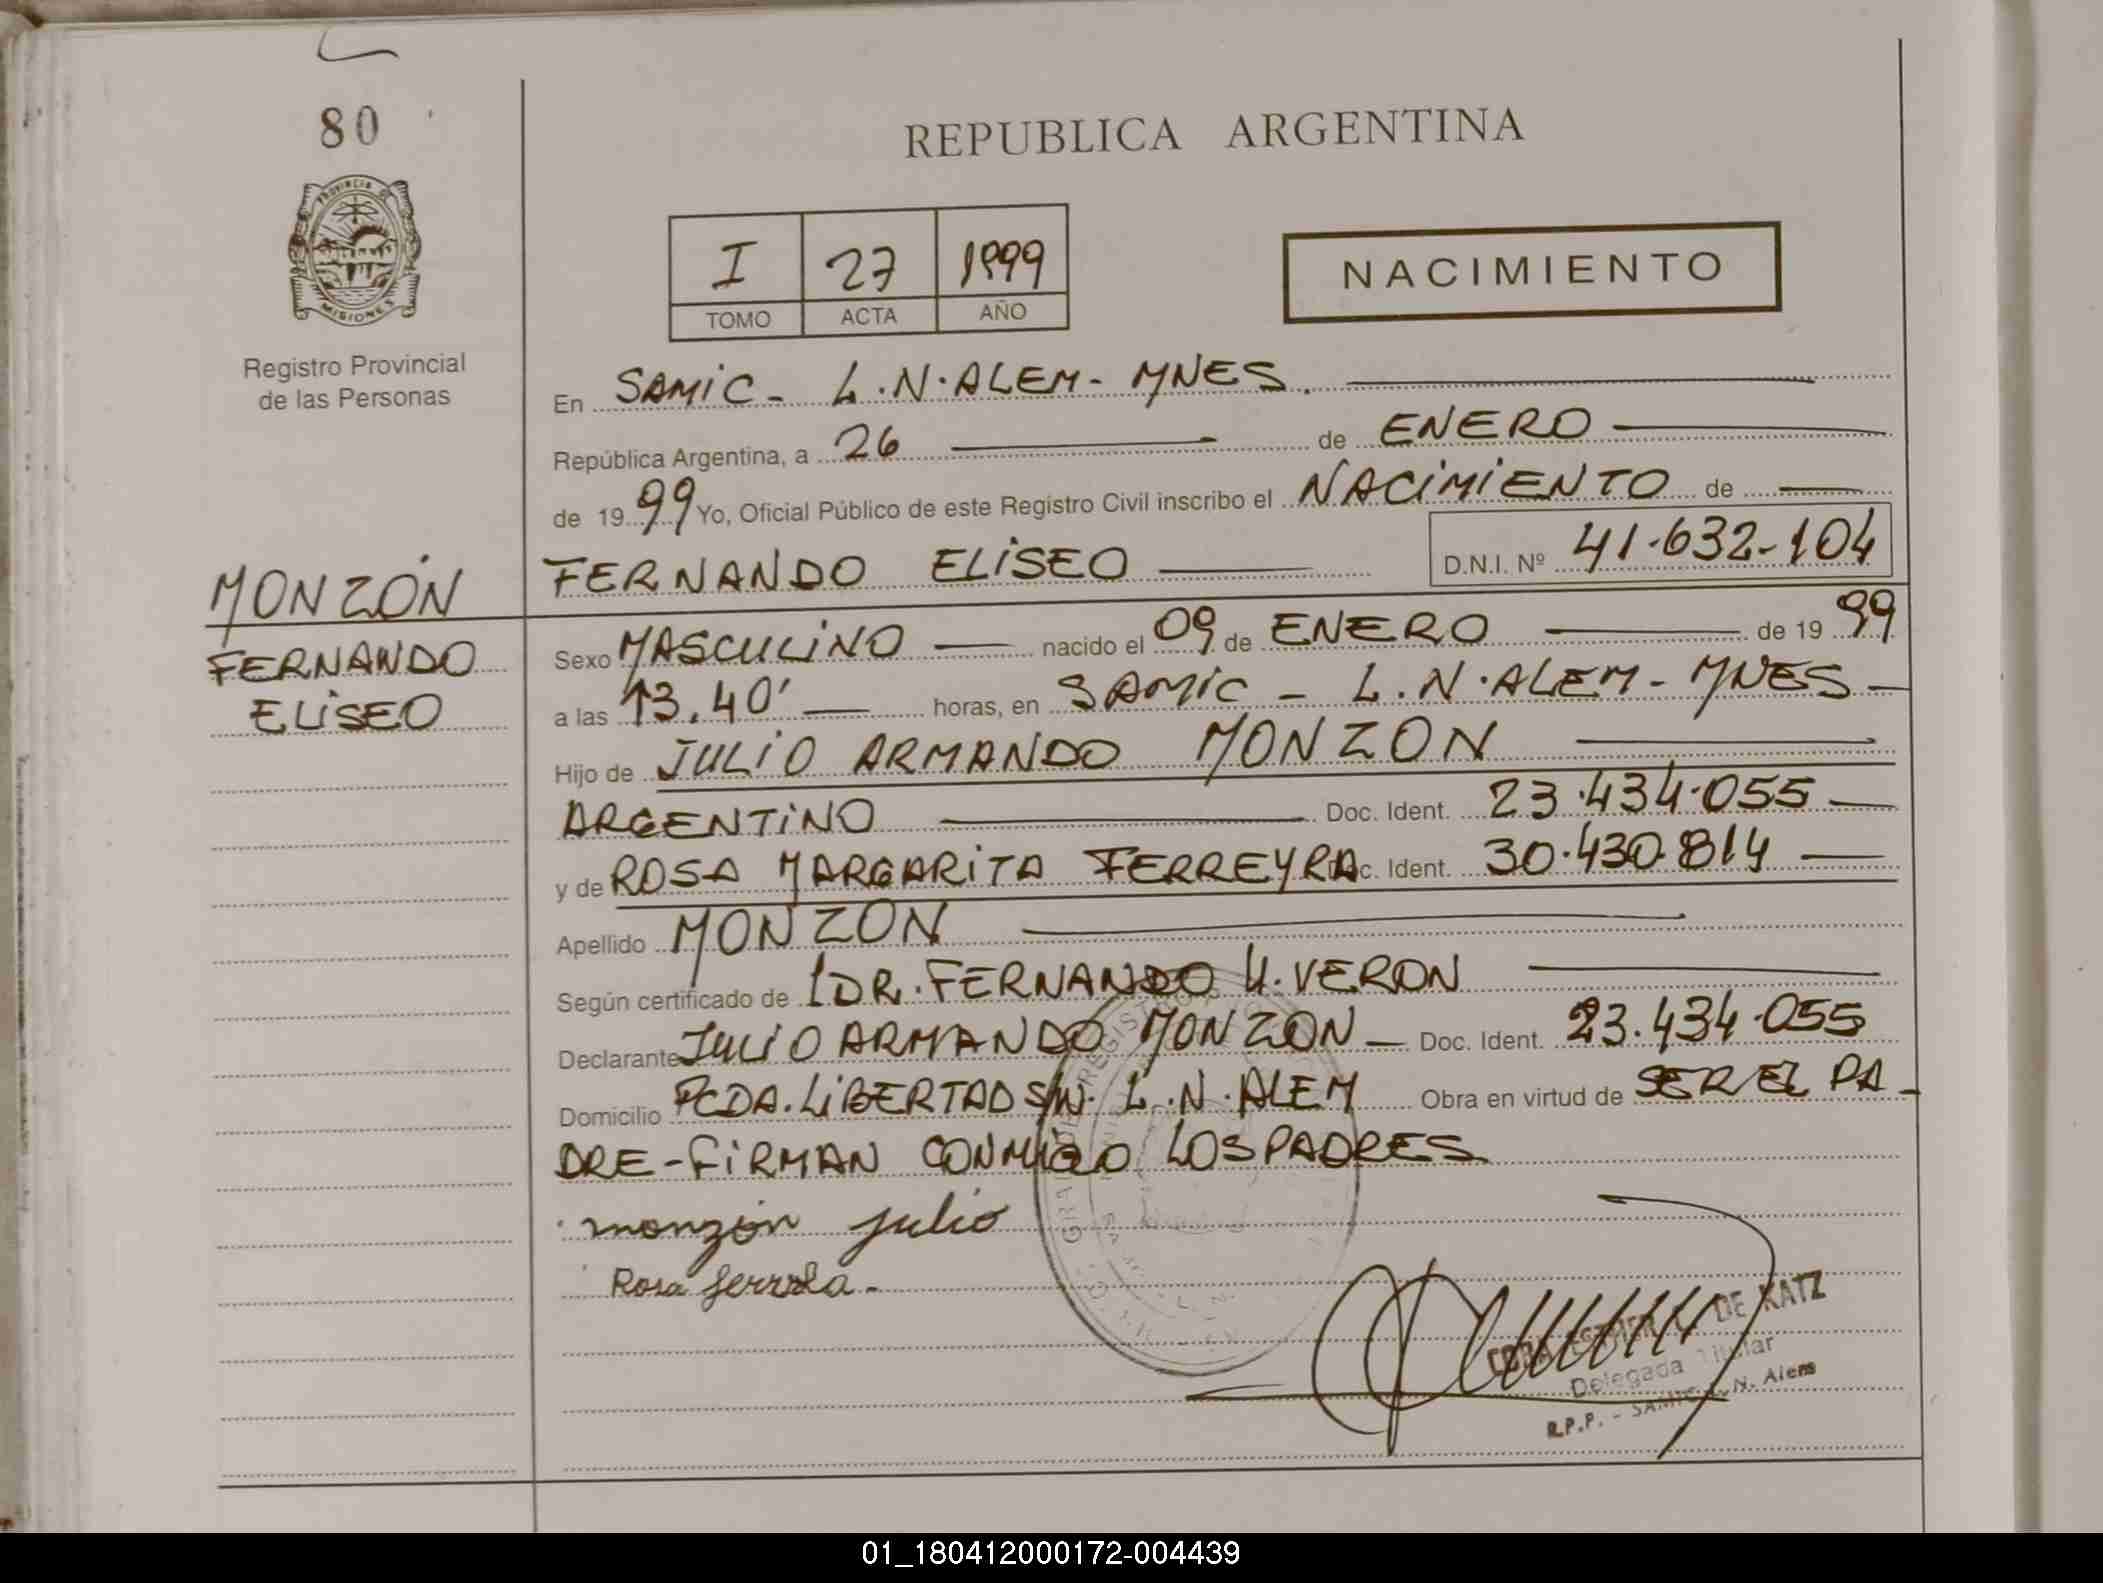 80
PROVINCIA DE
MISIONES
Registro Provincial
de las Personas
MONZÓN
FERNANDO
ELISEO
REPUBLICA ARGENTINA
I 27 1999
TOMO ACTA AÑO
NACIMIENTO
En SAMIC - L.N.ALEM - MNES.
República Argentina, a 26 de ENERO
de 1999 Yo, Oficial Público de este Registro Civil inscribo el NACIMIENTO de
FERNANDO ELISEO D.N.I. Nº 41.632.104
Sexo MASCULINO nacido el 09 de ENERO de 1999
a las 13.40' horas, en SAMIC - L.N.ALEM - MNES
Hijo de JULIO ARMANDO MONZON
ARGENTINO Doc. Ident. 23.434.055
y de ROSA MARGARITA FERREYRA Doc. Ident. 30.430.814
Apellido MONZON
Según certificado de DR. FERNANDO H. VERON
Declarante JULIO ARMANDO MONZON Doc. Ident. 23.434.055
Domicilio PCDA. LIBERTAD S/N. L.N.ALEM Obra en virtud de SER EL PA-
DRE - FIRMAN CONMIGO LOS PADRES
monzón julio
Rosa
DE KATZ
Delegada Titular
R.P.P. - SAMIC L.N. Alem
01_180412000172-004439